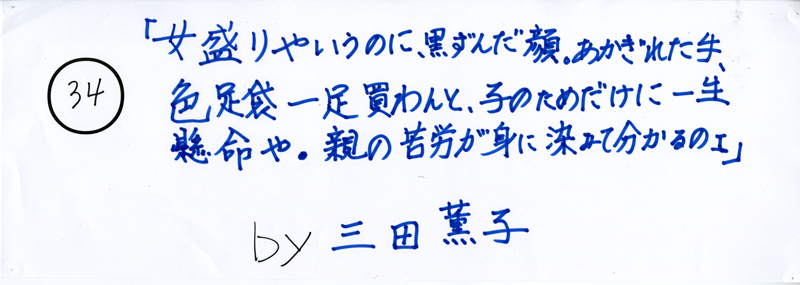 「女盛りやいうのに、黒ずんだ顔。あかぎれた手、
34
色足袋一足買わんと、子のためだけに一生
懸命や。親の苦労が身に染みて分かるのェ」
by 三田薫子